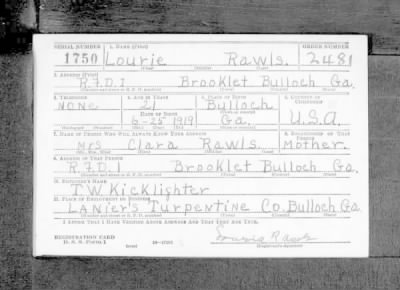 SERIAL NUMBER 1. NAME (Print) ORDER NUMBER
1750 Lourie Rawls. 2481
(First) (Middle) (Last)
2. ADDRESS (Print)
R.F.D.1 Brooklet Bulloch Ga.
3. TELEPHONE 4. AGE IN YEARS 5. PLACE OF BIRTH 6. COUNTRY OF CITIZENSHIP
NONE 21 Bulloch
DATE OF BIRTH
6-25-1919 Ga. U.S.A.
7. NAME OF PERSON WHO WILL ALWAYS KNOW YOUR ADDRESS 8. RELATIONSHIP OF THAT PERSON
Mrs Clara Rawls. Mother.
9. ADDRESS OF THAT PERSON
R.F.D.1 Brooklet Bulloch Ga.
10. EMPLOYER'S NAME
T.W. Kicklighter
11. PLACE OF EMPLOYMENT OR BUSINESS
Lanier's Turpentine Co. Bulloch Ga
I AFFIRM THAT I HAVE VERIFIED ABOVE ANSWERS AND THAT THEY ARE TRUE.
REGISTRATION CARD
D. S. S. Form 1
(over)
(Registrant's signature)